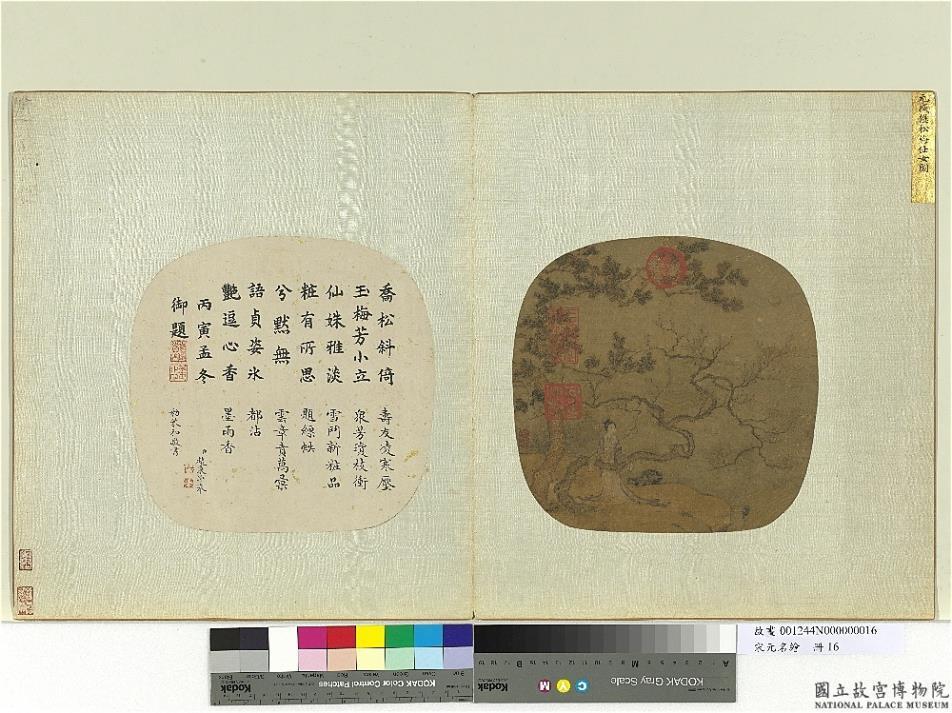 松梅仕女圖
喬松斜倚
玉梅芳小立
仙姝雅淡
粧有所思
兮默無
語貞姿冰
艷逗心香
丙寅孟冬
御題
壽友凌寒壓
衆芳瓊枝衒
雪鬥新粧品
題縹帙
雲章貴萬彙
都沾
墨雨香
勅恭和敬書
KODAK Color Control Patches
Kodak
KODAK Gray Scale
Kodak
C Y M
故畫 001244N000000016
宋元名繪 冊 16
國立故宮博物院
NATIONAL PALACE MUSEUM